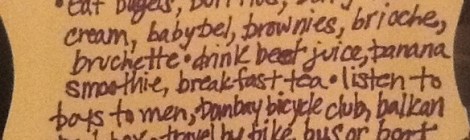 •eat bagels, burritos,
cream, babybel, brownies, brioche,
bruchette•drink beet juice, banana
smoothie, breakfast tea•listen to
boys to men, bombay bicycle club, balkan
beat box•travel by bike, bus or boat